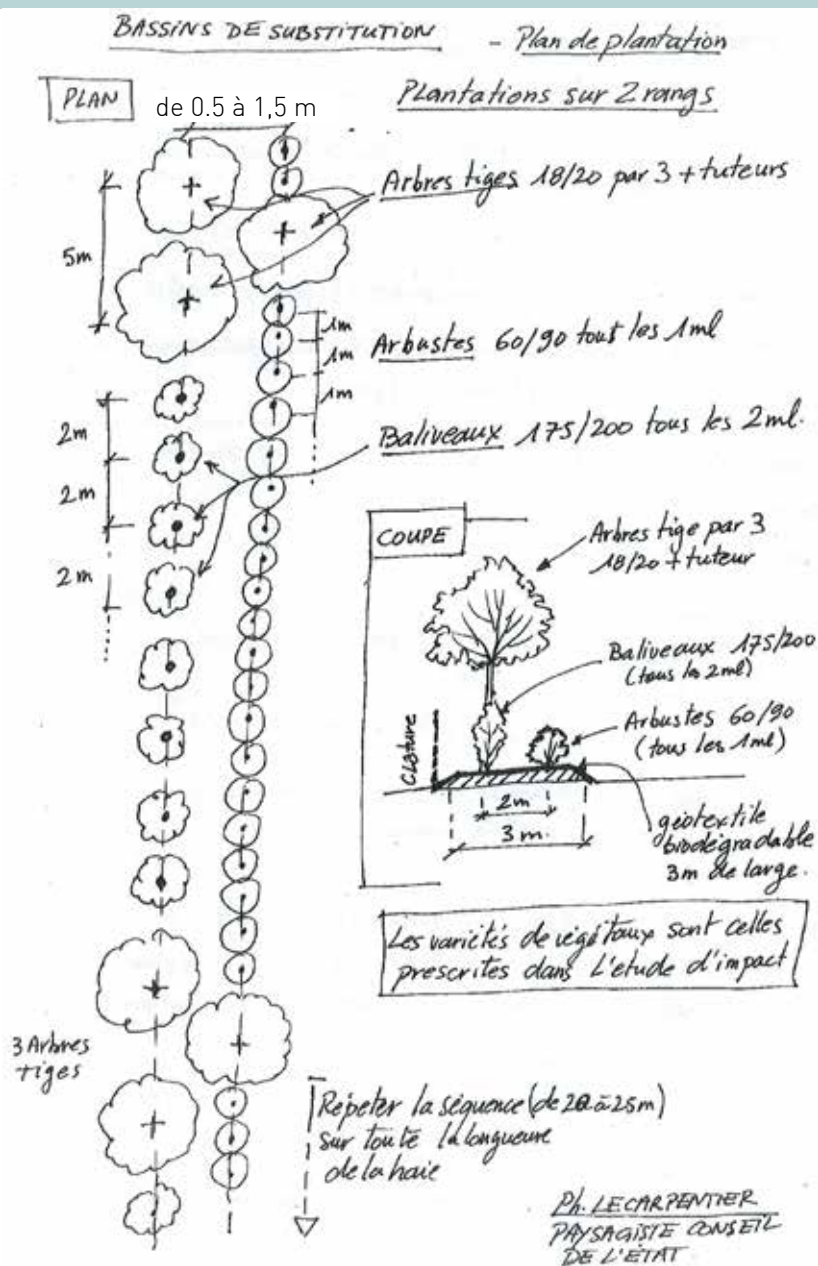 BASSINS DE SUBSTITUTION - Plan de plantation
PLAN
de 0.5 à 1,5 m
Plantations sur 2 rangs
Arbres tiges 18/20 par 3 + tuteurs
5m
1m
1m
1m
Arbustes 60/90 tout les 1ml
Baliveaux 175/200 tous les 2ml.
2m
2m
2m
COUPE
Arbres tige par 3
18/20 + tuteur
Baliveaux 175/200
(tous les 2ml)
Arbustes 60/90
(tous les 1ml)
Clôture
2m
3m.
géotextile
biodégradable
3m de large.
Les variétés de végétaux sont celles
prescrites dans l'étude d'impact
3 Arbres
tiges
Répeter la séquence (de 20 à 25m)
sur toute la longueure
de la haie
Ph. LECARPENTIER
PAYSAGISTE CONSEIL
DE L'ÉTAT